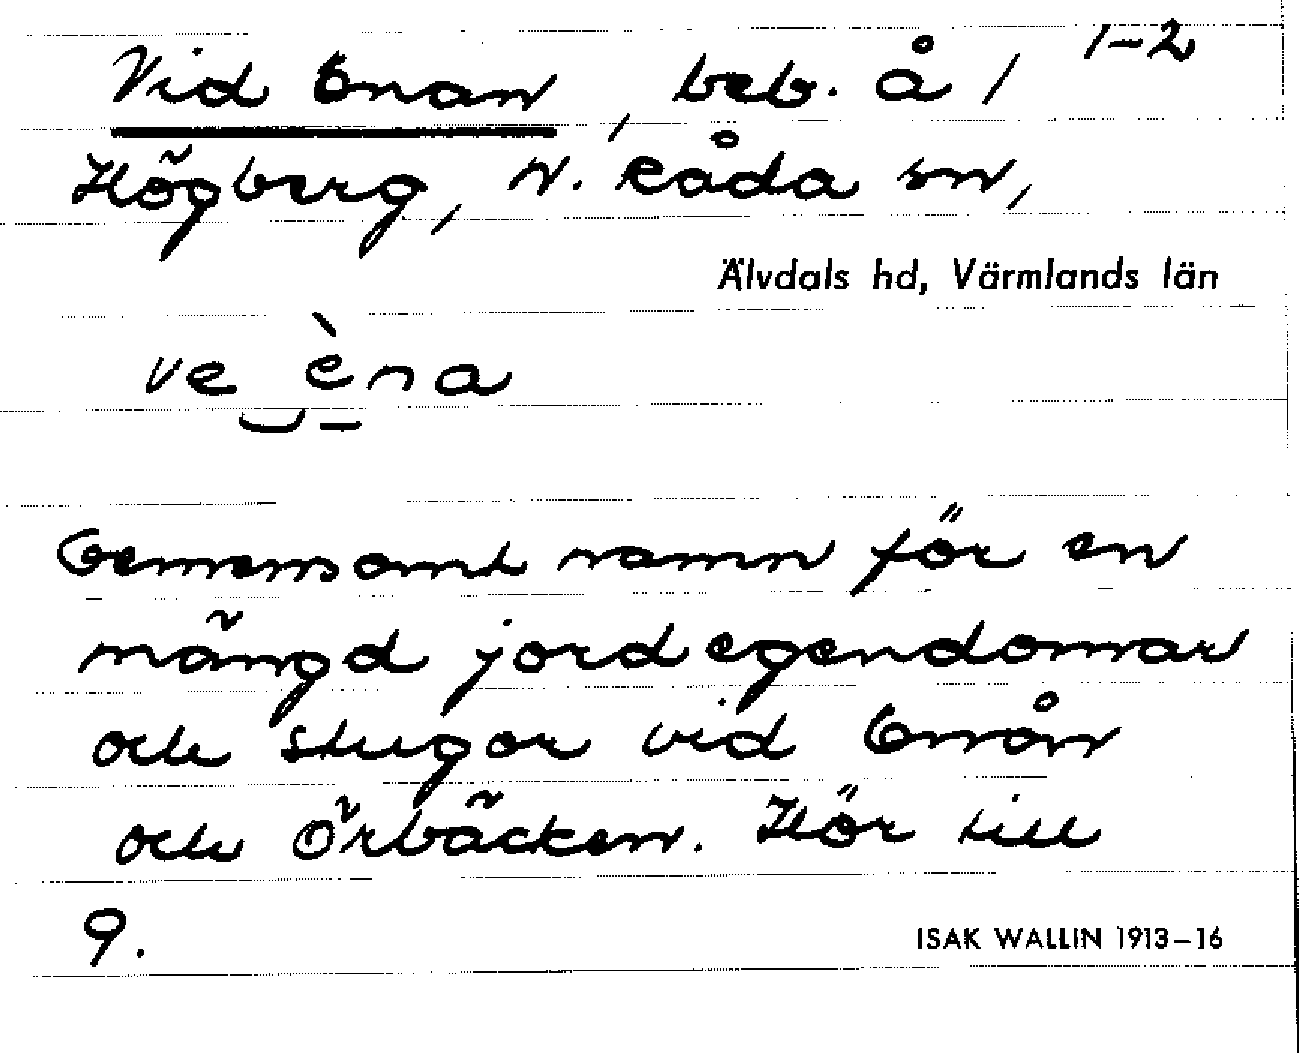 Vid Enan, beb. å 1 1-2
Högberg, N. Råda sn,
Älvdals hd, Värmlands län
ve èna
Gemensamt namn för en
mängd jordegendomar
och stugor vid Enån
och Örbäcken. Hör till
9.
ISAK WALLIN 1913-16